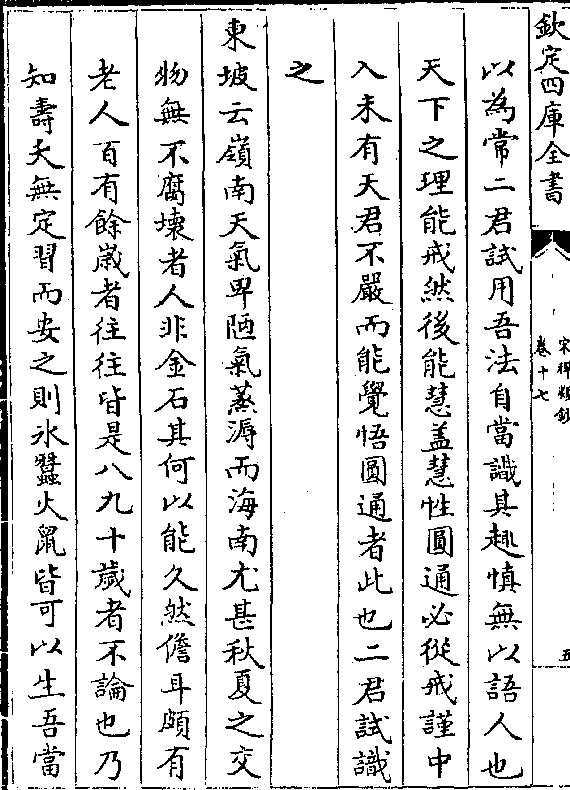 欽定四庫全書
宋稗類鈔
卷十七
五
以為常二君試用吾法自當識其趣慎無以語人也
天下之理能戒然後能慧蓋慧性圓通必從戒謹中
入未有天君不嚴而能覺悟圓通者此也二君試識
之
東坡云嶺南天氣卑陋氣蒸溽而海南尤甚秋夏之交
物無不腐壞者人非金石其何以能久然儋耳頗有
老人百有餘歲者往往皆是八九十歲者不論也乃
知壽夭無定習而安之則氷蠶火鼠皆可以生吾當